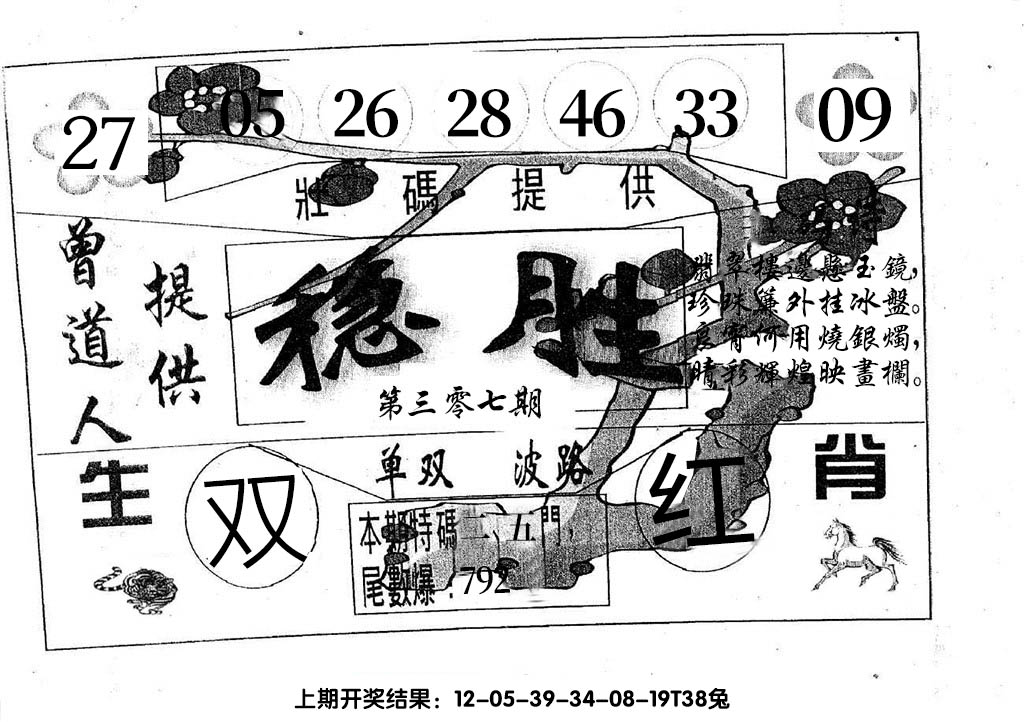 27 05 26 28 46 33 09
壯碼提供
特
曾道人
提供
稳胜
第三零七期
翡翠樓邊懸玉鏡，
珍珠簾外挂冰盤。
良宵何用燒銀燭，
晴彩輝煌映畫欄。
单双 波路
生肖
双
红
本期特碼二、五門，
尾數爆：792
上期开奖结果：12-05-39-34-08-19T38兔